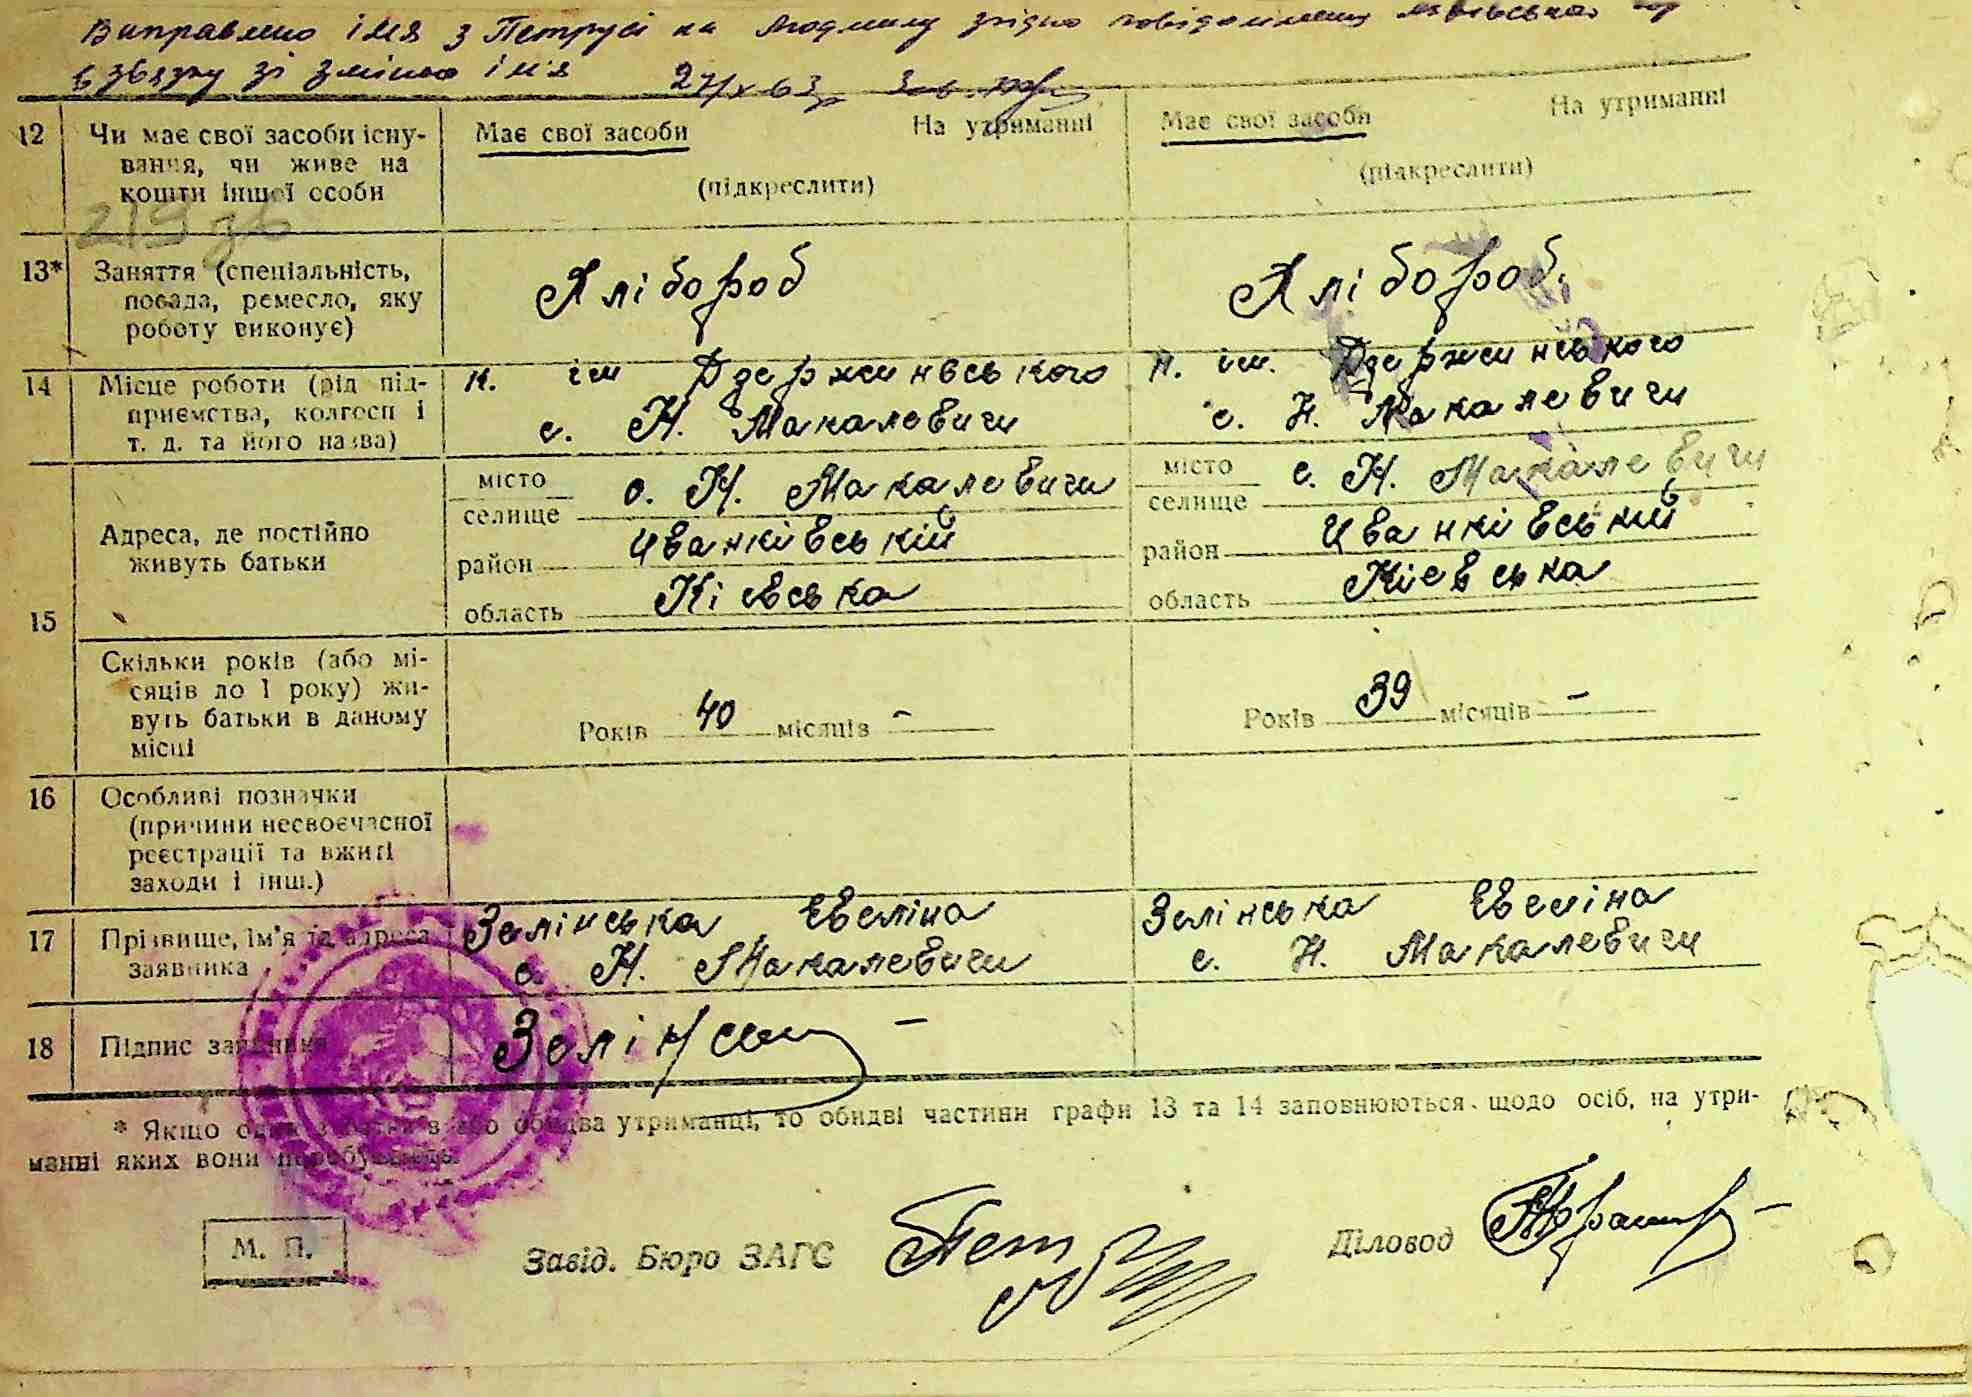 Виправлено імя з Петрусі на Людмилу згідно повідомлення
в звязку зі зміною імя 27/X 63
12 Чи має свої засоби існу- Має свої засоби На утриманні Має свої засоби На утриманні
вання, чи живе на (підкреслити) (підкреслити)
кошти іншої особи
13* Заняття (спеціальність, Хлібороб Хлібороб.
посада, ремесло, яку
роботу виконує)
14 Місце роботи (рід під- к. ім Дзержинвського к. ім. Дзержинського
приємства, колгосп і с. Н. Макалевичи с. Н. Макалевичи
т. д. та його назва)
15 Адреса, де постійно
живуть батьки
місто с. Н. Макалевичи місто с. Н. Макалевичи
селище селище
район Иванківський район Иванківський
область Кієвська область Кієвська
Скільки років (або мі-
сяців до 1 року) жи-
вуть батьки в даному
місці
Років 40 місяців – Років 39 місяців –
16 Особливі позначки
(причини несвоєчасної
реєстрації та вжиті
заходи і інш.)
17 Прізвище, ім'я та адреса Зелінська Евеліна Зелінська Евеліна
заявника с. Н. Макалевичи с. Н. Макалевичи
18 Підпис заявника –
* Якщо один з батьків або обидва утриманці, то обидві частини графи 13 та 14 заповнюються щодо осіб, на утри-
манні яких вони перебувають.
М. П. Завід. Бюро ЗАГС Діловод